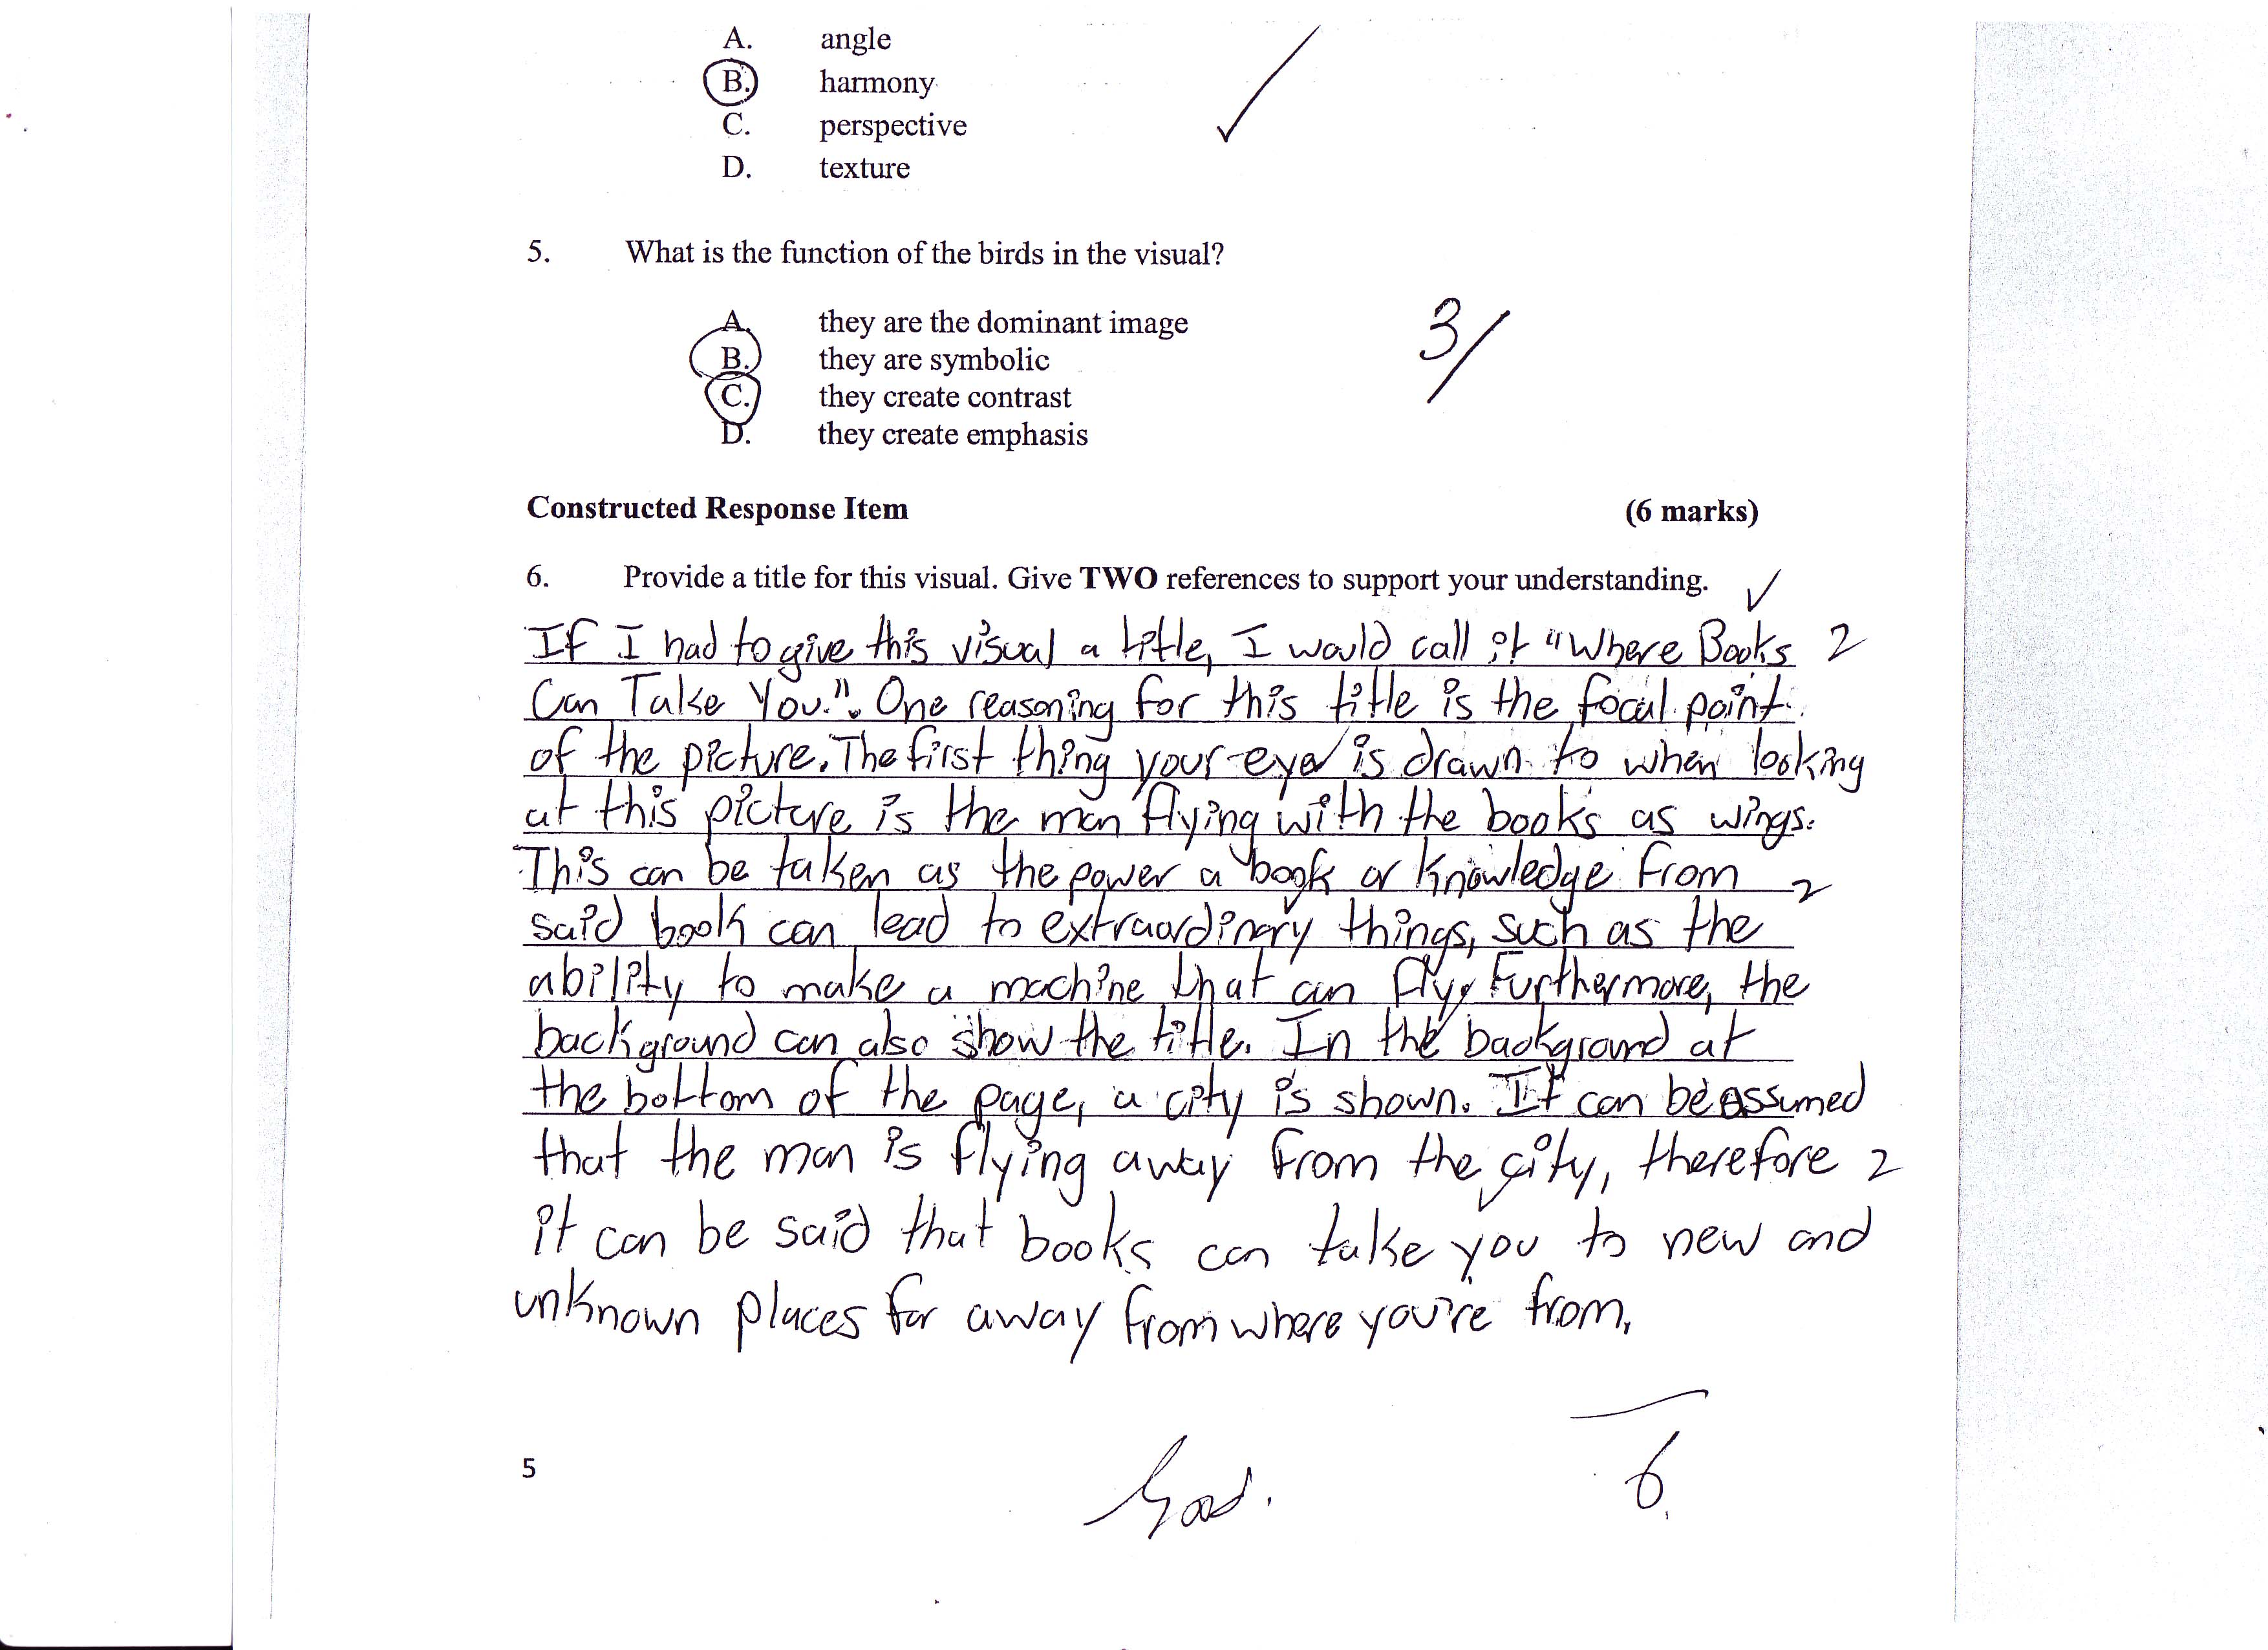 A. angle
B. harmony
C. perspective
D. texture
5. What is the function of the birds in the visual?
A. they are the dominant image
B. they are symbolic
C. they create contrast
D. they create emphasis
3/
Constructed Response Item (6 marks)
6. Provide a title for this visual. Give TWO references to support your understanding.
If I had to give this visual a title, I would call it "Where Books 2
Can Take You.". One reasoning for this title is the focal point
of the picture. The first thing your eye is drawn to when looking
at this picture is the man flying with the books as wings.
This can be taken as the power a book or knowledge from 2
said book can lead to extraordinary things, such as the
ability to make a machine that can fly. Furthermore, the
background can also show the title. In the background at
the bottom of the page, a city is shown. It can be assumed
that the man is flying away from the city, therefore 2
it can be said that books can take you to new and
unknown places far away from where you're from.
5 Good. 6